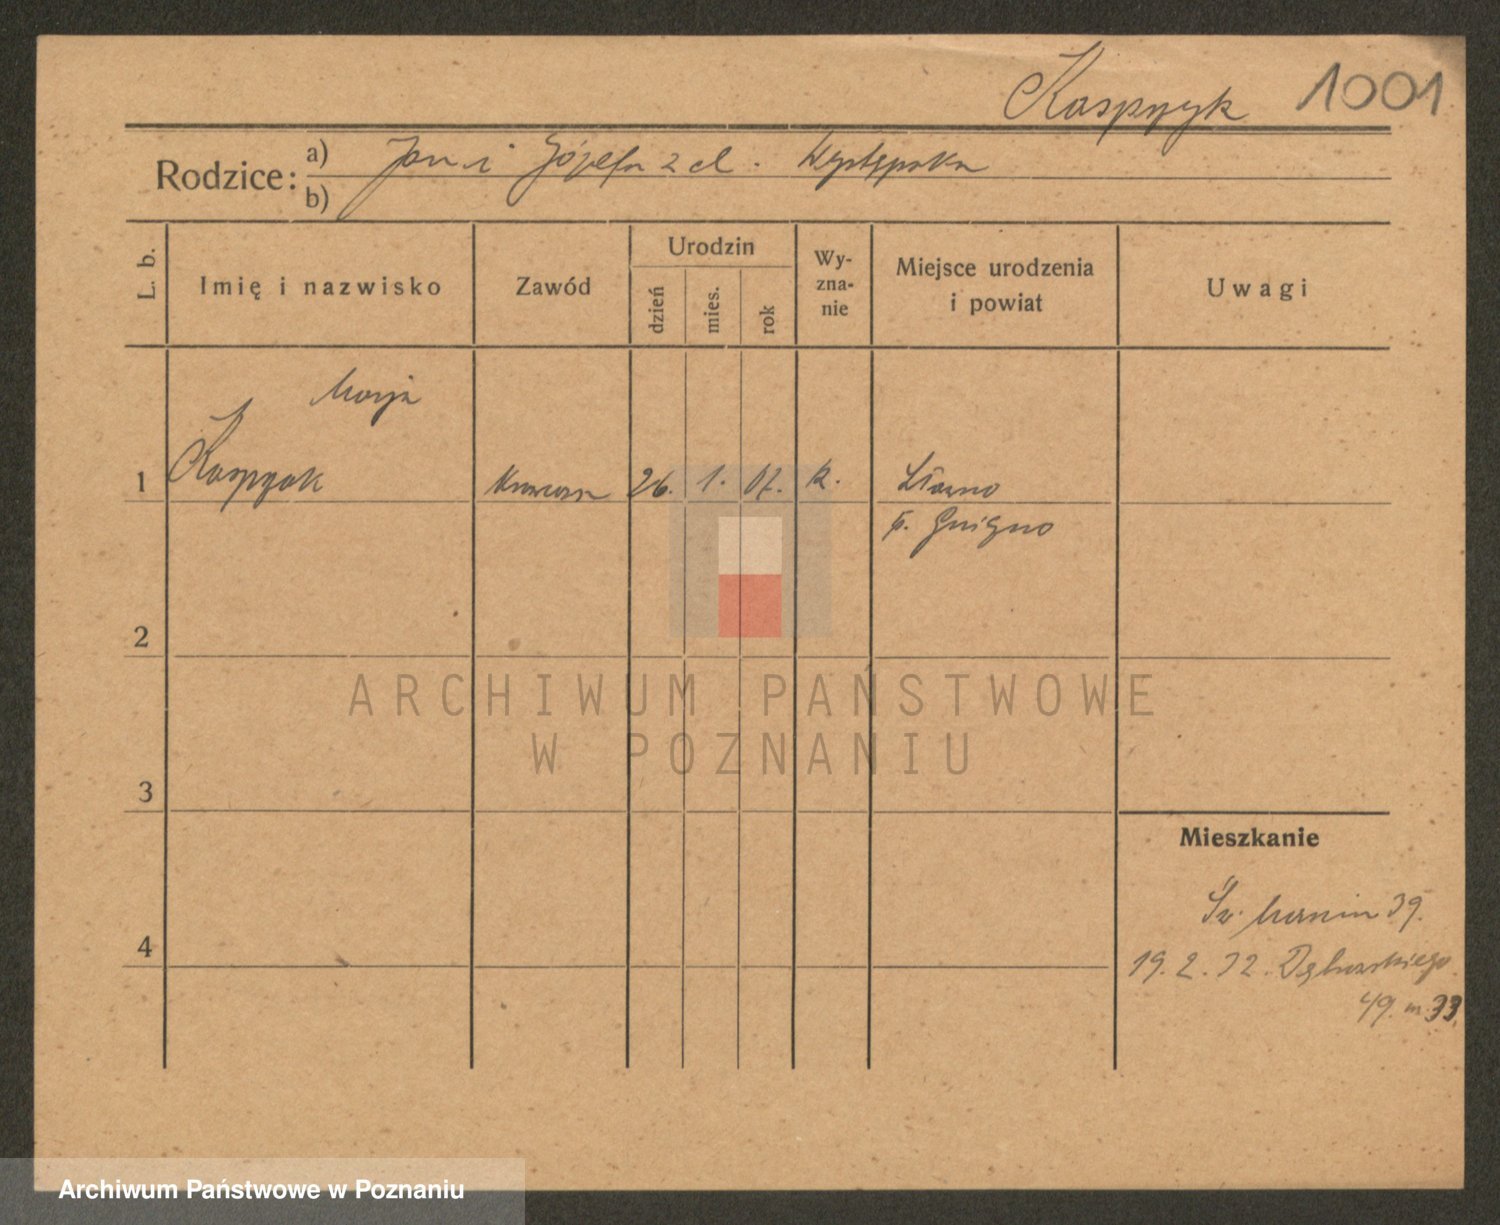 Kasprzyk 1001
Rodzice: a) Jan i Józefa z d.
b)
L. b.
Imię i nazwisko
Zawód
Urodzin
dzień
mies.
rok
Wy-
zna-
nie
Miejsce urodzenia
i powiat
Uwagi
Marja
1 Kasprzak 26. 1. 07. k.
p.
2
ARCHIWUM PAŃSTWOWE
W POZNANIU
3
Mieszkanie
Św. Marcin 39.
4
19.2.32. Dąbrowskiego
49. m. 33.
Archiwum Państwowe w Poznaniu